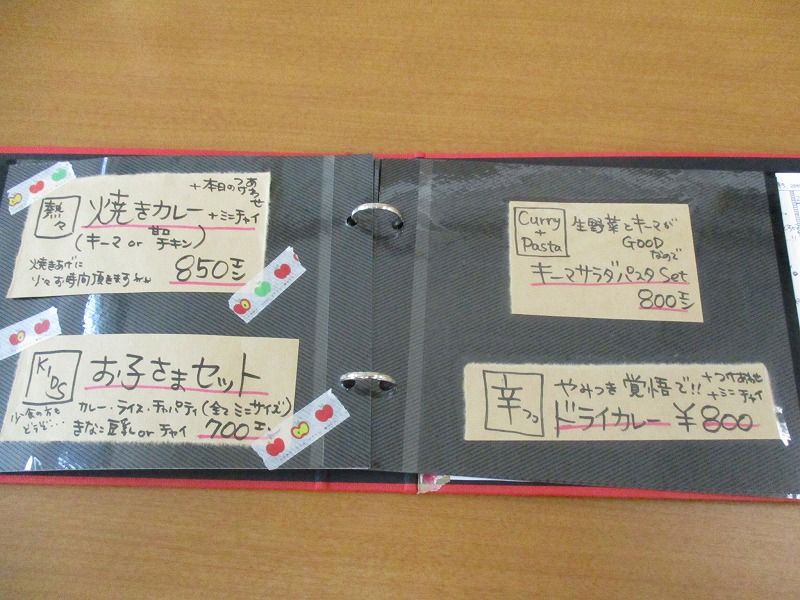 熱々
+本日のつけあわせ
焼きカレー +ミニチャイ
(キーマ or チキン)
焼きあげに
少々お時間頂きますが
850エン
KIDS
お子さまセット
少食の方も
どうぞ…
カレー・ライス・チャパティ(全てミニサイズ)
きなこ豆乳 or チャイ 700エン
Curry
+
Pasta
生野菜とキーマが
GOOD
なので
キーマサラダパスタ Set
800エン
辛
やみつき覚悟で!!
+つけあわせ
+ミニチャイ
ドライカレー ¥800